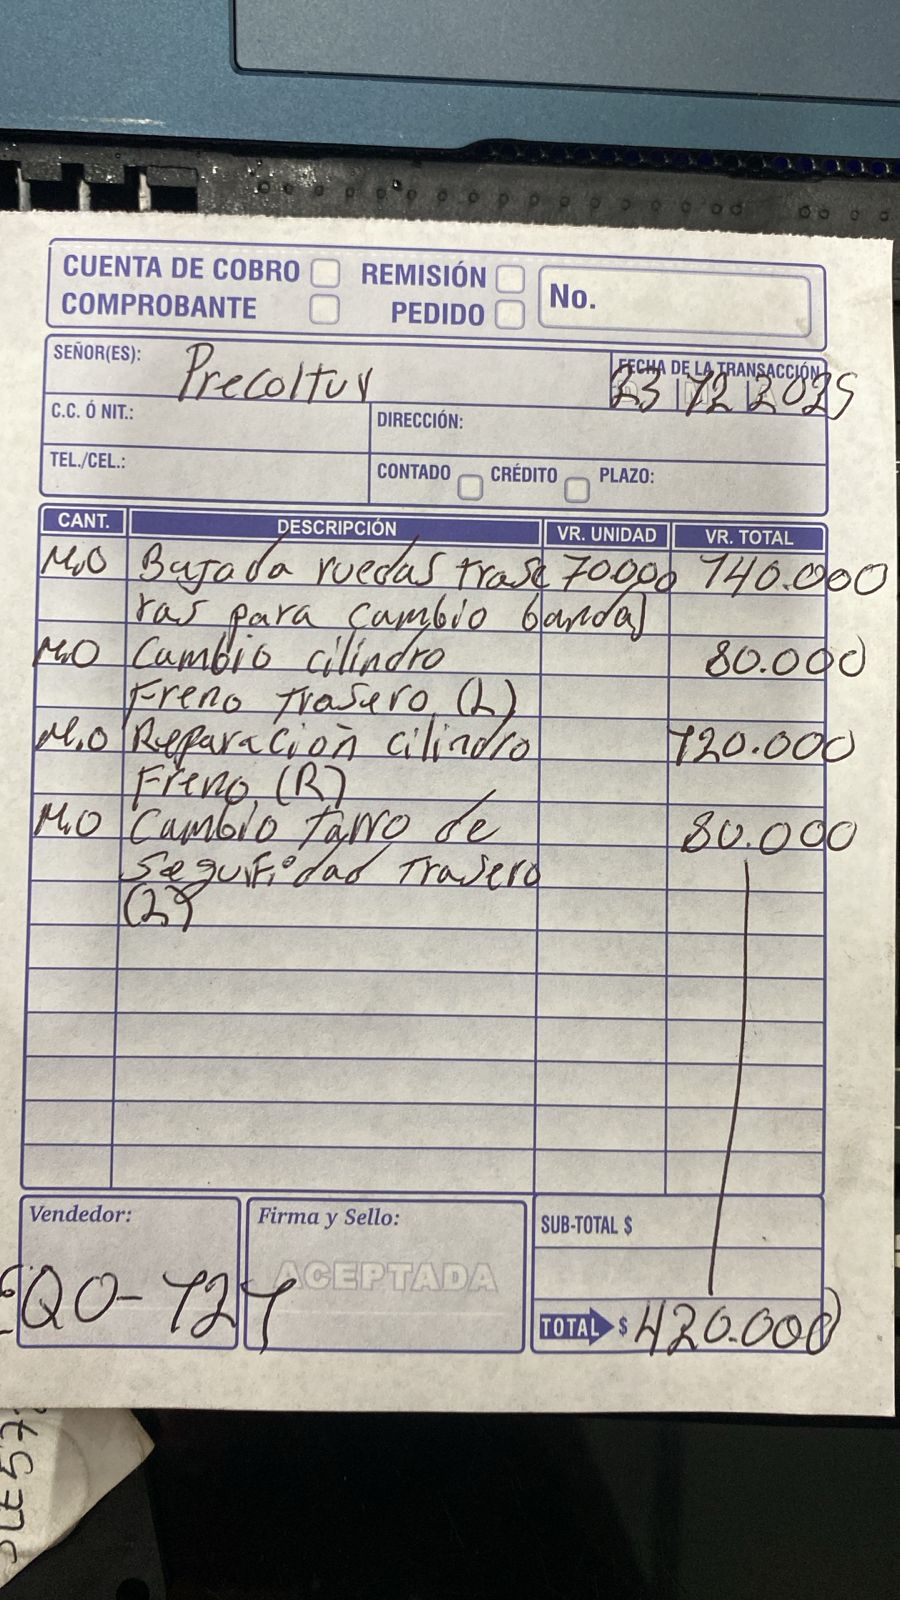 CUENTA DE COBRO
REMISIÓN
No.
COMPROBANTE
PEDIDO
SEÑOR(ES): Precoltur
FECHA DE LA TRANSACCIÓN
23 12 2025
C.C. Ó NIT.:
DIRECCIÓN:
TEL./CEL.:
CONTADO
CRÉDITO
PLAZO:
CANT. DESCRIPCIÓN VR. UNIDAD VR. TOTAL
M.O Bajada ruedas trase 70000 140.000
ras para cambio bandas
M.O Cambio cilindro 80.000
Freno trasero (L)
M.O Reparación cilindro 120.000
Freno (R)
M.O Cambio tarro de 80.000
Seguridad trasero
(L)
Vendedor:
Firma y Sello:
SUB-TOTAL $
ACEPTADA
QO-121
TOTAL $ 420.000